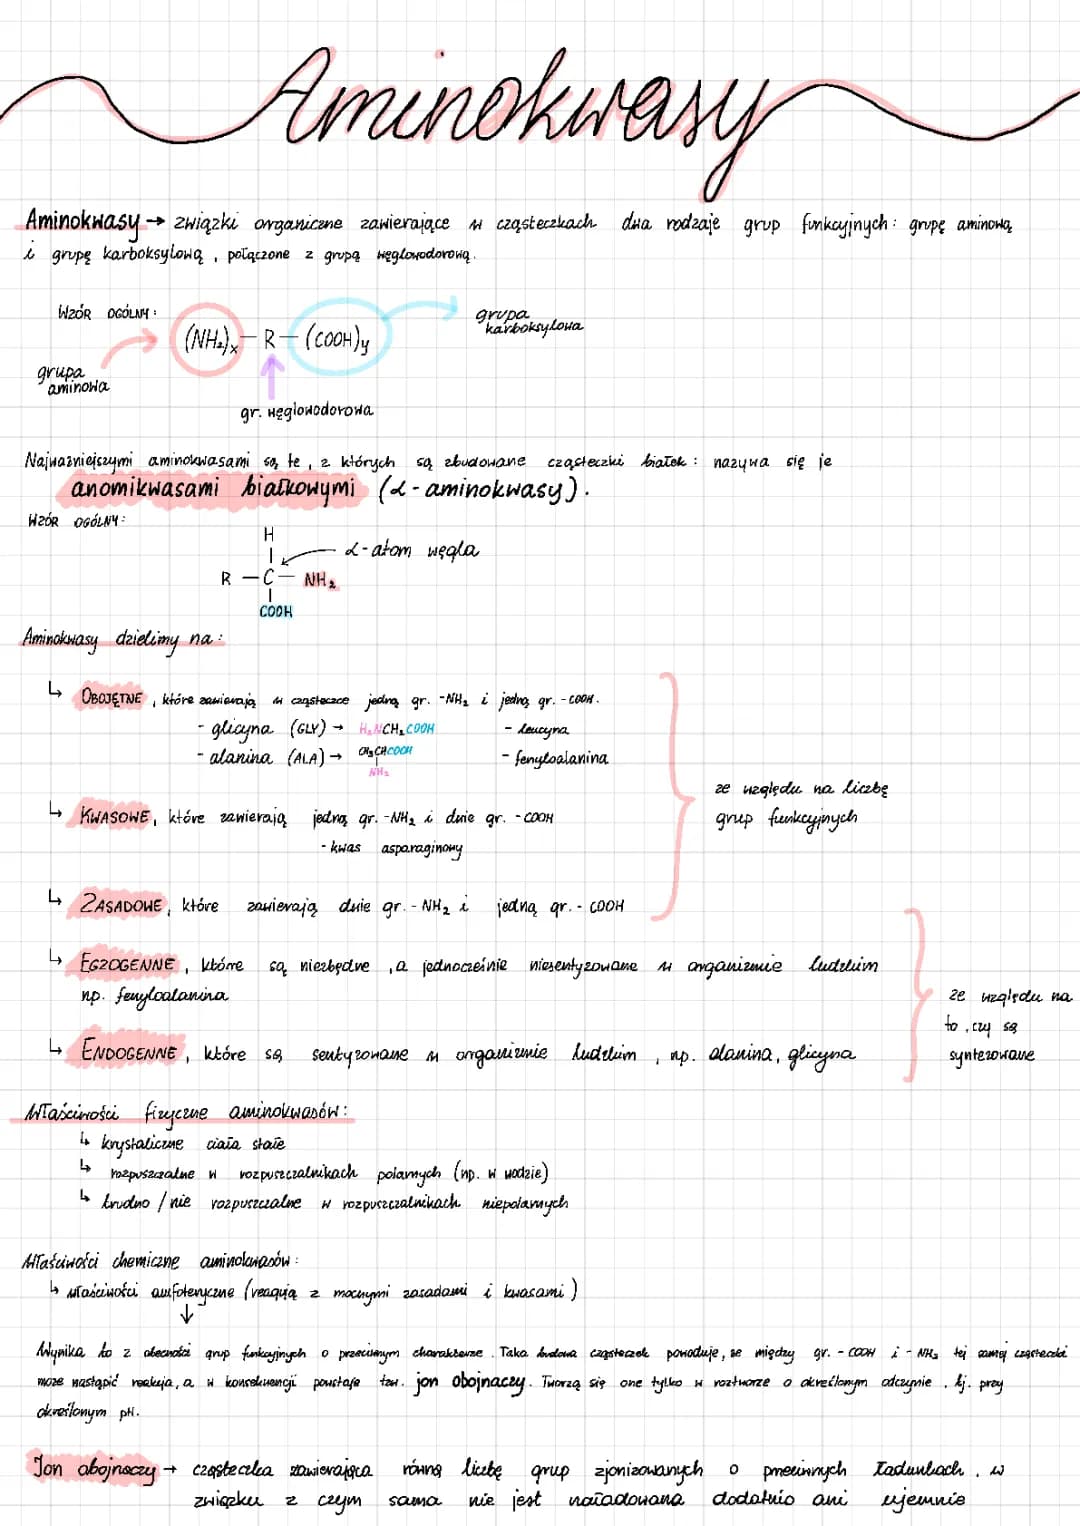 Aminokwasy
Aminokwasy → związki organiczne zawierające w cząsteczkach dwa rodzaje grup funkcyjnych: grupę aminową
i grupę karboksylową, połączone z grupą węglowodorową.
WZÓR OGÓLNY:
(NH₂)ₓ — R — (COOH)y
grupa karboksylowa
grupa aminowa
gr. węglowodorowa
Najważniejszymi aminokwasami są te, z których są zbudowane cząsteczki białek: nazywa się je
anomikwasami białkowymi (α-aminokwasy).
WZÓR OGÓLNY:
H
α-atom węgla
R — C — NH₂
COOH
Aminokwasy dzielimy na:
↳ OBOJĘTNE, które zawierają w cząsteczce jedną gr. -NH₂ i jedną gr. -COOH.
- glicyna (GLY) → H₂NCH₂COOH - leucyna
- alanina (ALA) → CH₃CHCOOH - fenyloalanina
NH₂
ze względu na liczbę
grup funkcyjnych
↳ KWASOWE, które zawierają jedną gr. -NH₂ i dwie gr. -COOH
- kwas asparaginowy
↳ ZASADOWE, które zawierają dwie gr. -NH₂ i jedną gr. -COOH
↳ EGZOGENNE, które są niezbędne, a jednocześnie niesentyzowane w organizmie ludzkim
np. fenyloalanina
ze względu na
to, czy są
syntezowane
↳ ENDOGENNE, które są sentyzowane w organizmie ludzkim, np. alanina, glicyna
Właściwości fizyczne aminokwasów:
↳ krystaliczne ciała stałe
↳ rozpuszczalne w rozpuszczalnikach polarnych (np. w wodzie)
↳ trudno / nie rozpuszczalne w rozpuszczalnikach niepolarnych
Właściwości chemiczne aminokwasów:
↳ właściwości amfoteryczne (reagują z mocnymi zasadami i kwasami)
↓
Wynika to z obecności grup funkcyjnych o przeciwnym charakterze. Taka budowa cząsteczek powoduje, że między gr. -COOH i -NH₂ tej samej cząsteczki
może nastąpić reakcja, a w konsekwencji powstaje tzw. jon obojnaczy. Tworzą się one tylko w roztworze o określonym odczynie, tj. przy
określonym pH.
Jon obojnaczy → cząsteczka zawierająca równą liczbę grup zjonizowanych o przeciwnych ładunkach, w
związku z czym sama nie jest naładowana dodatnio ani ujemnie